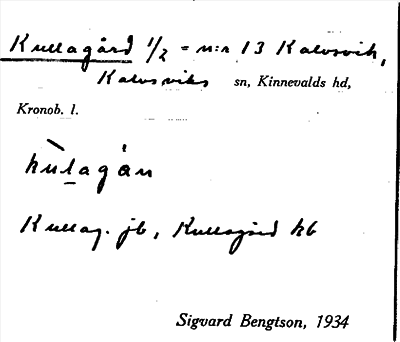 Kullagård 1/2 = n:r 13 Kalvsvik,
Kalvsviks sn, Kinnevalds hd,
Kronob. l.
kùlagán
Kullag. jb, Kullagård kb
Sigvard Bengtson, 1934